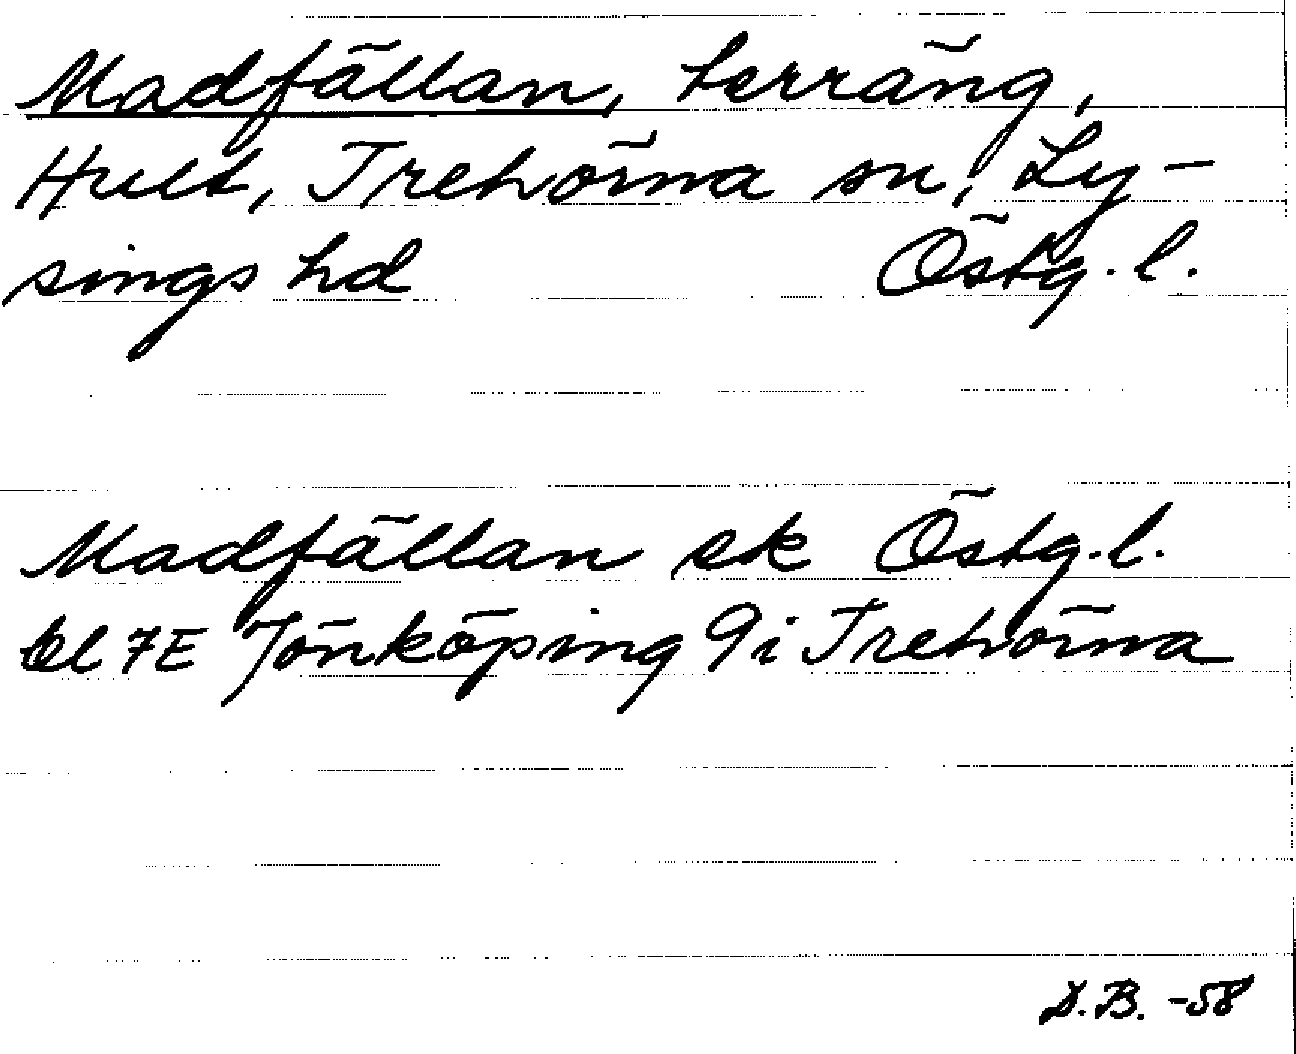 Madfällan, terräng,
Hult, Trehörna sn, Ly-
sings hd Östg. l.
Madfällan ek Östg. l.
bl 7E Jönköping 9i Trehörna
D.B. -58